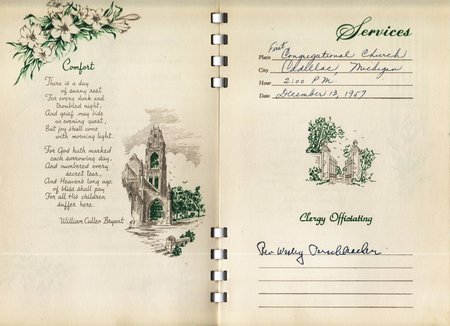 Comfort
There is a day
of sunny rest
For every dark and
troubled night,
And grief may bide
an evening guest,
But joy shall come
with morning light.
For God hath marked
each sorrowing day,
And numbered every
secret tear,
And Heaven's long age
of bliss shall pay
For all His children
suffer here.
William Cullen Bryant
Services
Place First Congregational Church
City Cadillac Michigan
Hour 2:00 P.M.
Date December 13, 1957
Clergy Officiating
Rev Wesley